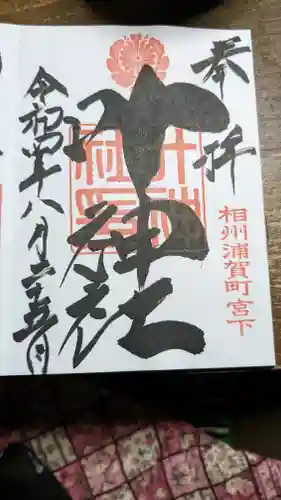 奉拝
相州浦賀町宮下
叶神社
叶神社印
令和四年八月二十五日